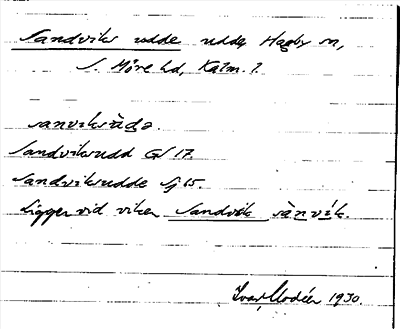 Sandviks udde udde, Hagby sn,
S. Möre hd, Kalm. l.
sanviksùdə.
Sandviksudd GS 17.
Sandviksudde Sj 65.
Ligger vid viken Sandvik sànvík.
Ivar Modéer 1930.